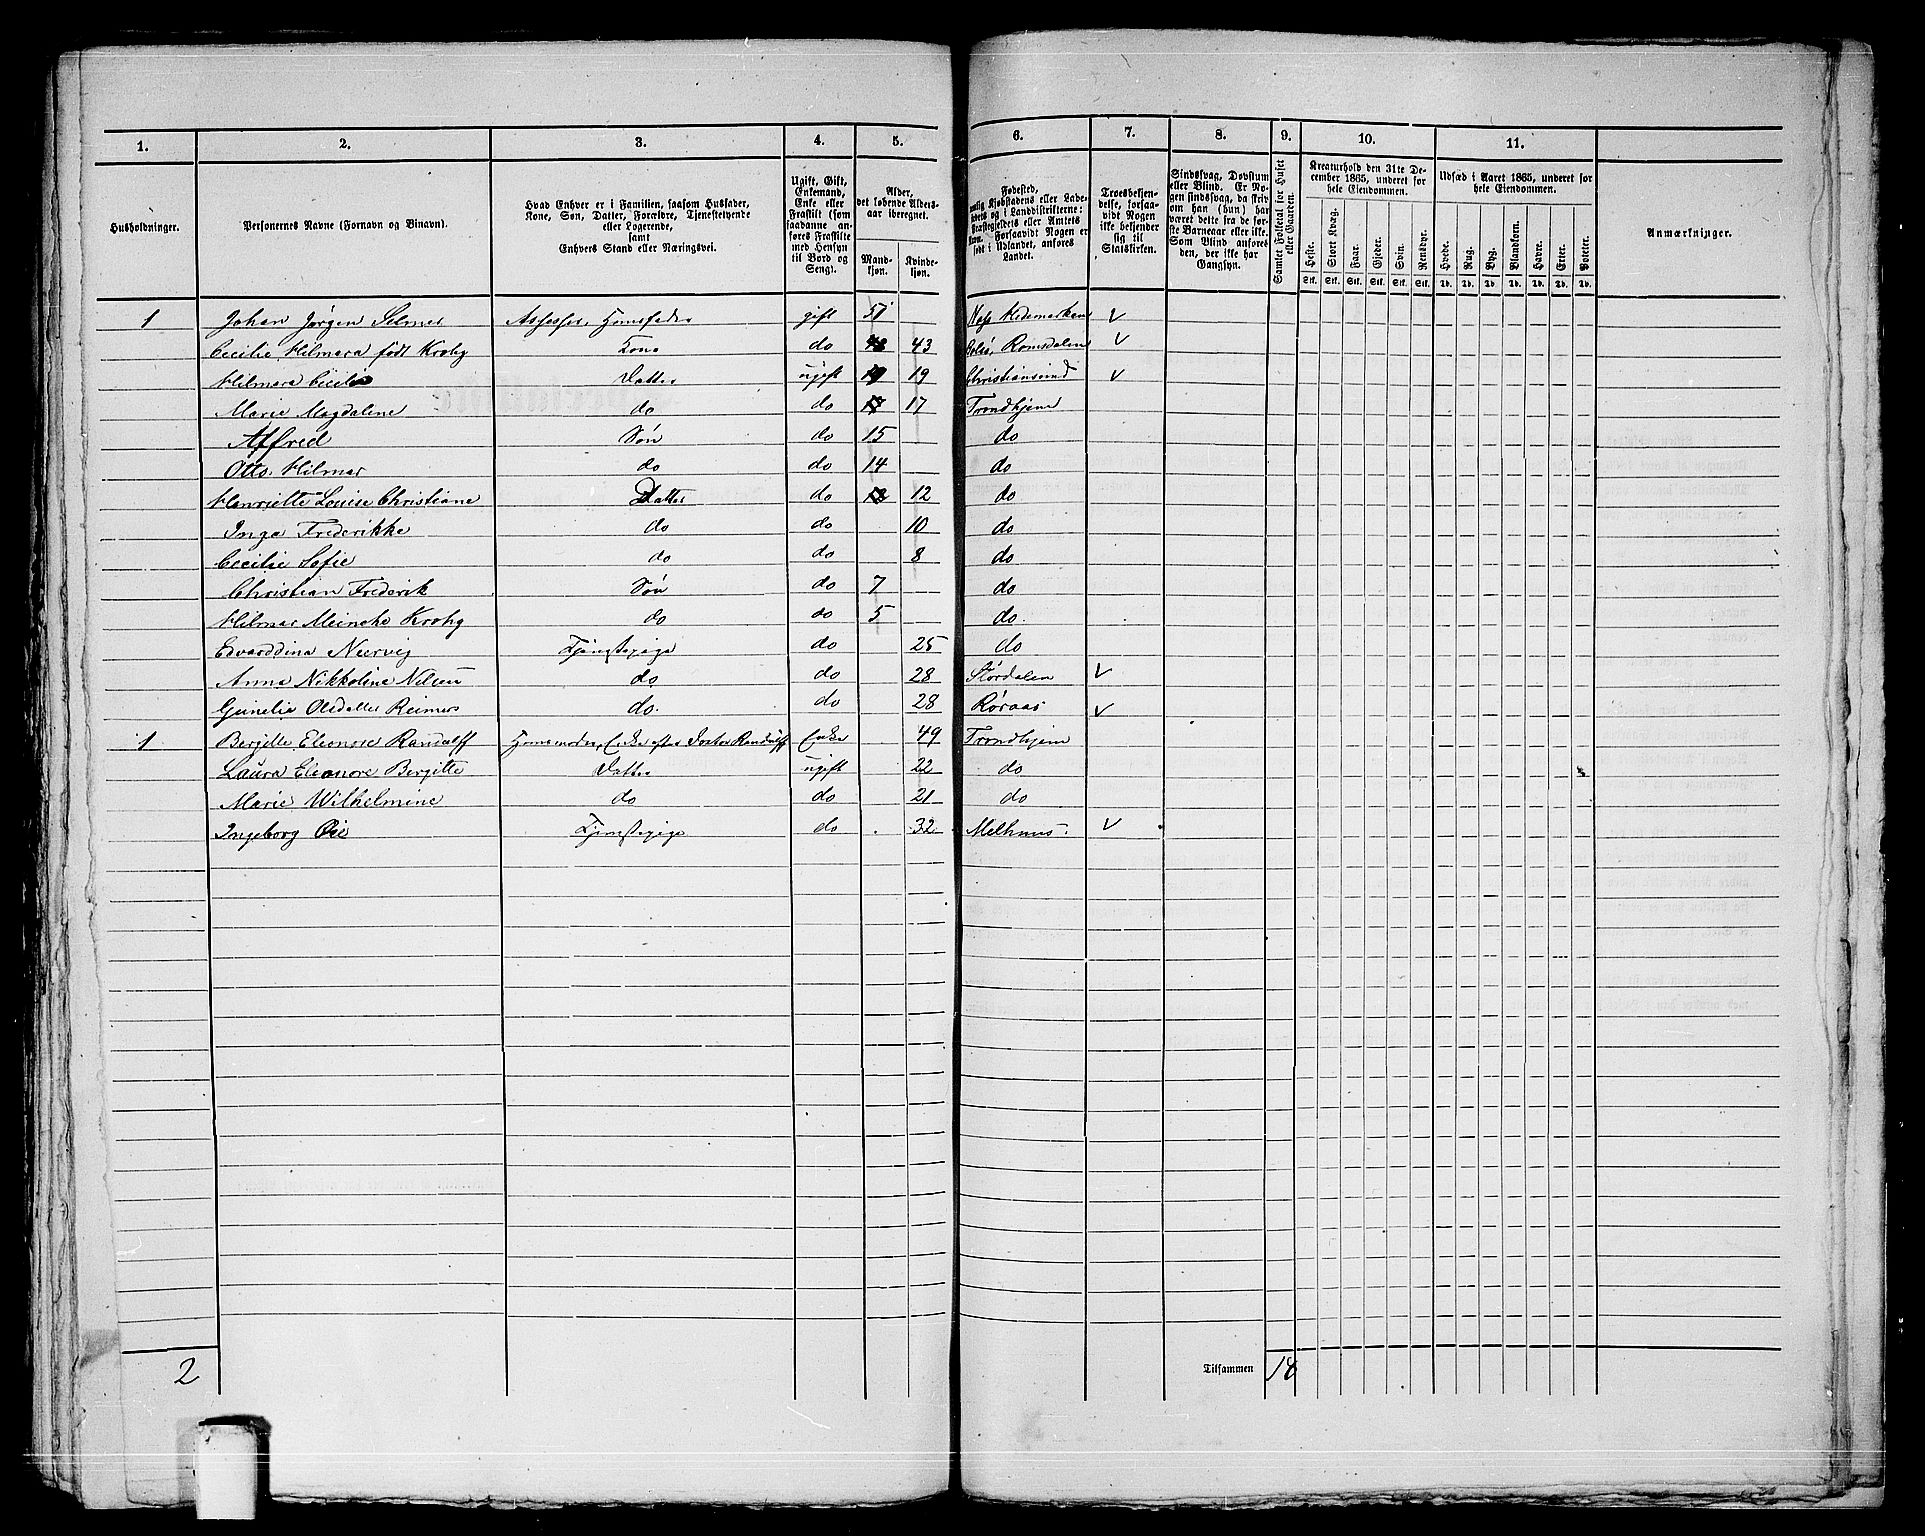 1. 2. 3. 4. 5. 6. 7. 8. 9. 10. 11.
Husholdninger.
Personernes Navne (Fornavn og Binavn).
Hvad Enhver er i Familien, saasom Husfader,
Kone, Søn, Datter, Forældre, Tjenestetyende
eller Logerende,
samt
Enhvers Stand eller Næringsvei.
Ugift, Gift,
Enkemand,
Enke eller
Fraskilt (som
saadanne an-
føres Fraskilte
med Hensyn
til Bord og
Seng).
Alder,
det løbende Alders-
aar iberegnet.
Mand-
kjøn.
Kvinde-
kjøn.
Fødested,
Kjøbstadens eller Lade-
stedets og i Landdistrikterne:
Præstegjeldets eller Amtets
Navn. Forsaavidt Nogen er
født i Udlandet, anføres
Landet.
Troesbekjen-
delse, forsaa-
vidt Nogen
ikke bekjender
sig til
Statskirken.
Sindssvag, Døvstum
eller Blind. Er No-
gen sindssvag, da skriv
om han (hun) har
været dette fra de før-
ste Barneaar eller ikke.
Som Blind anføres
den, der ikke har
Gangsyn.
Samlet Folketal for Huset
eller Gaarden.
Kreaturhold den 31te De-
cember 1865, underet for
hele Eiendommen.
Heste. Stort Kvæg. Faar. Gjeder. Svin. Rensdyr.
Stk. Stk. Stk. Stk. Stk. Stk.
Udsæd i Aaret 1865, underet for
hele Eiendommen.
Hvede. Rug. Byg. Blandkorn. Havre. Erter. Poteter.
Td. Td. Td. Td. Td. Td. Td.
Anmærkninger.
1 Johan Jørgen Selmer Assessor, Huusfader gift 51 Næs Hedemarken
Cecilie Hilmara født Krohg Kone do 43 Bolsø, Romsdalen
Hilmara Cecilie Datter ugift 19 Christianssund
Marie Magdalene do do 17 Trondhjem
Alfred Søn do 15 do
Otto Hilmar do do 14 do
Henriette Louise Christiane Datter do 12 do
Inga Frederikke do do 10 do
Cecilie Sofie do do 8 do
Christian Frederik Søn do 7 do
Hilmar Meincke Krohg do do 5 do.
Edvarddina Neervig Tjenstepige do 25 do
Anna Nikkoline Nilsen do do 28 Størdalen
Gunelia Olsdatter Reimers do. do 28 Røraas
1 Bergitte Eleonore Randulff Huusmoder, Enke efter Randulff Enke 49 Trondhjem
Laura Eleonore Bergitte Datter ugift 22 do
Marie Wilhelmine do do 21 do
Ingeborg Øie Tjenstepige do 32 Melhuus
2 Tilsammen 18